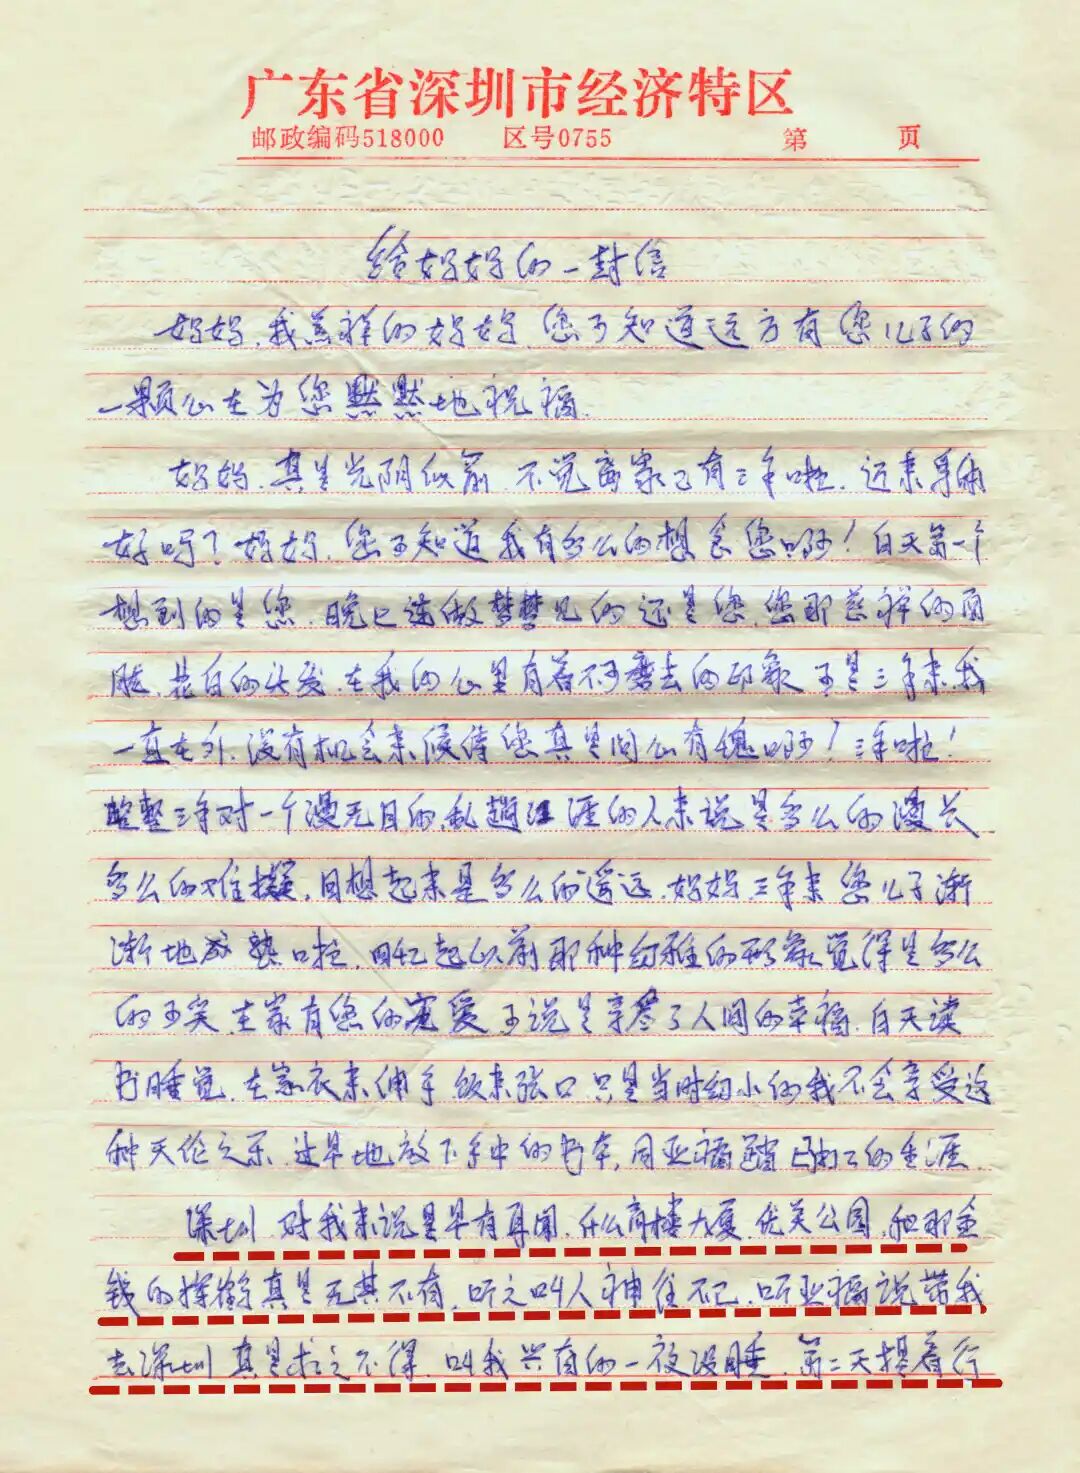 广东省深圳市经济特区
邮政编码518000 区号0755 第 页
给妈妈的一封信
妈妈,我慈祥的妈妈,您可知道远方有您儿子的
一颗心在为您默默地祝福.
妈妈,真是光阴似箭,不觉离家已有三年啦.近来身体
好吗?妈妈,您可知道我有多么的想念您啊!白天第一个
想到的是您,晚上连做梦梦见的还是您,您那慈祥的面
脸,花白的头发,在我的心里有着不可磨去的印象,可是三年来,我
一直在外,没有机会来候侍您真是问心有愧啊!三年啦!
整整三年对一个漫无目的,乱 涯的人来说是多么的漫长
多么的难 ,回想起来是多么的遥远,妈妈,三年来您儿子渐
渐地成熟啦,回忆起以前那种幼稚的形象觉得是多么
的可笑,在家有您的宠爱可说是享尽了人间的幸福,白天读
书睡觉,在家衣来伸手,饭来张口,只是当时幼小的我不会享受这
种天伦之乐,过早地放下手中的书本,同亚福 打工的生涯.
深圳,对我来说是早有耳闻,什么商楼大厦,优美公园,和那金
钱的 真是无其不有,听之叫人神往不已,听亚福说带我
去深圳真是求之不得,叫我兴奋的一夜没睡,第二天提着行